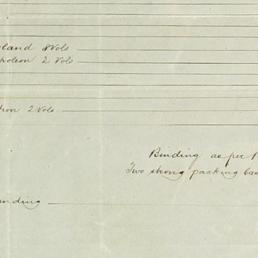 land 8 Vols
oleon 2 Vols
2 Vols
Binding as per
Two strong packing
nding